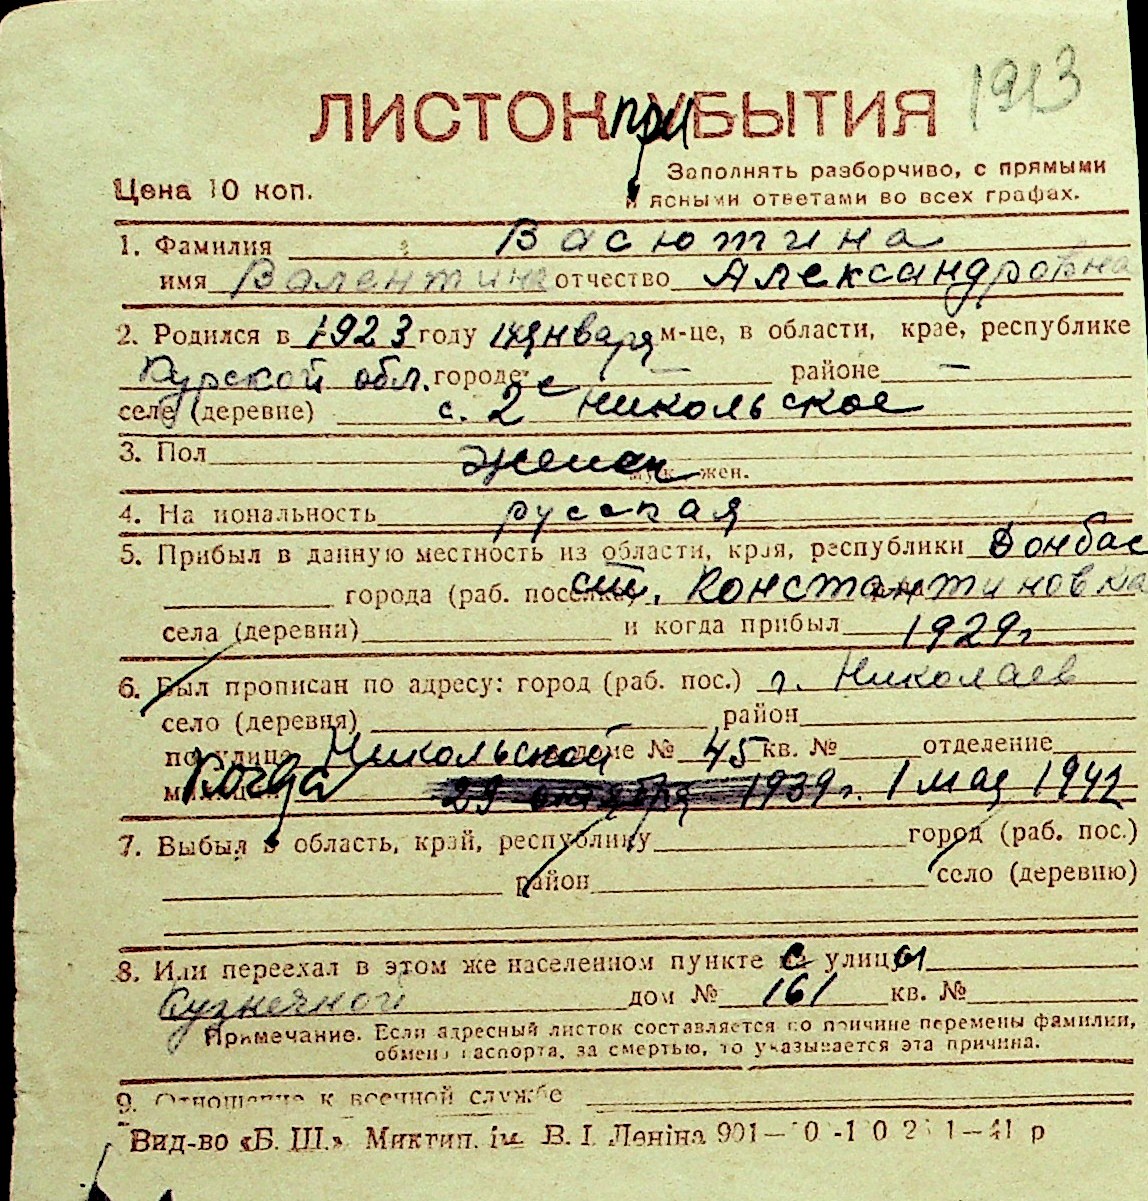 1923
ЛИСТОК ПРИБЫТИЯ
Цена 10 коп.
Заполнять разборчиво, с прямыми
и ясными ответами во всех графах.
1. Фамилия Васютина
имя Валентина отчество Александровна
2. Родился в 1923 году января м-це, в области, крае, республике
Курской обл. городе — районе —
селе (деревне) с. 2е Никольское
3. Пол женск
муж. жен.
4. Национальность русская
5. Прибыл в данную местность из области, края, республики Донбас
города (раб. поселка) ст. Константиновка
села (деревни) и когда прибыл 1929 г
6. Был прописан по адресу: город (раб. пос.) г. Николаев
село (деревня) район
по улице Никольской доме № 45 кв. № отделение
когда 29 октября 1939 г. 1 мая 1942
7. Выбыл в область, край, республику город (раб. пос.)
район село (деревню)
8. Или переехал в этом же населенном пункте с улицы
Кузнечной дом № 161 кв. №
Примечание. Если адресный листок составляется по причине перемены фамилии,
обмена паспорта, за смертью, то указывается эта причина.
9. Отношение к военной службе
Вид-во «Б. Ш.» Миктип. ім. В. І. Леніна 901—